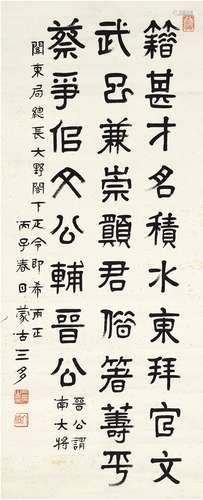 籍甚才名積水東拜官文
武已兼崇願君借箸籌平
蔡爭佀文公輔晉公
晉公謂
南大將
關東局總長大野閣下疋令即希兩正
丙子春日蒙古三多